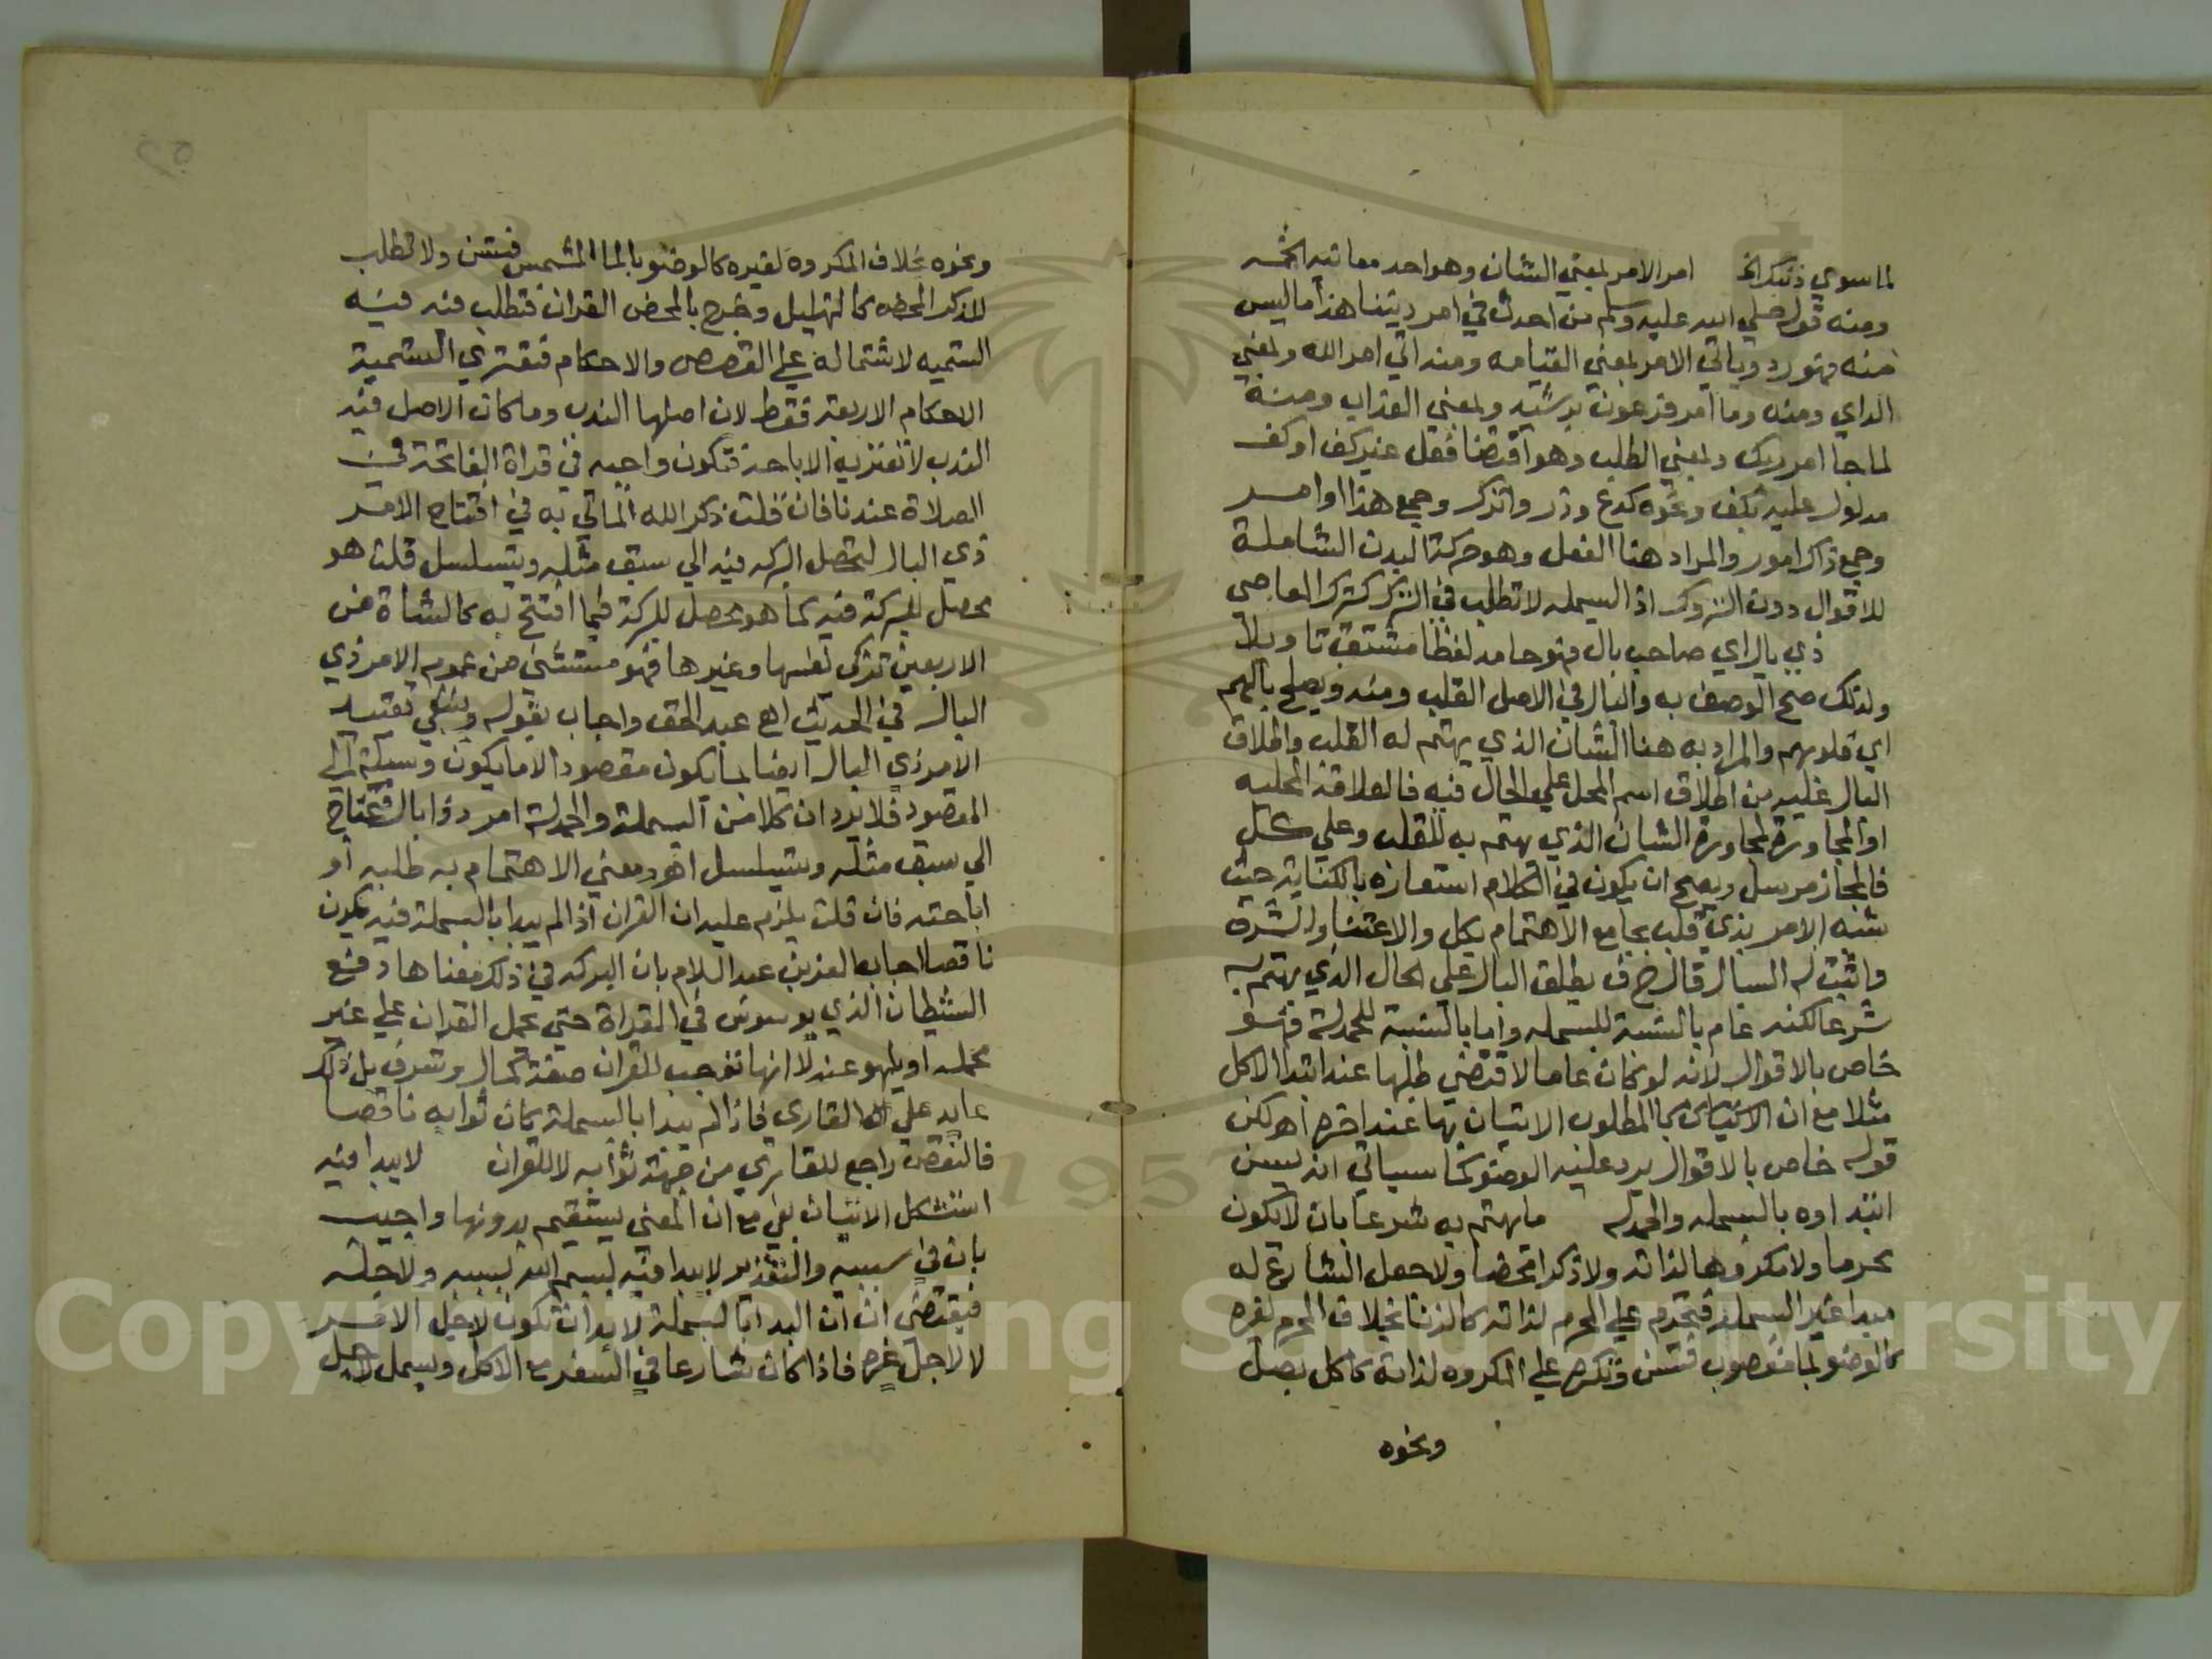 لما سوي ذلك الخ امر الامر لمعني الشان وهو احد معانيه الخمسه
ومنه قوله صلي الله عليه وسلم من احدث في امر ديننا هذا ما ليس
منه فهو رد وياتي الامر لمعني القيامه ومنه اتي امر الله ولمعني
الراي ومنه وما امر فرعون برشيد ولمعني العذاب ومنه
لما جا امر ربك ولمعني الطلب وهو اقتضا فعل غير كف او كف
مدلول عليه بكف ونحوه كدع وذر واترك وجمع هذا اوامر
وجمع ذاك امور والمراد هنا الفعل وهو حركة البدن الشاملة
للاقوال دون التروك اذ البسمله لا تطلب في الترك كترك المعاصي
ذي بال اي صاحب بال فهو جامد لفظا مشتق تاويلا
ولذلك صح الوصف به والبال في الاصل القلب ومنه ويصلح بالهم
اي قلوبهم والمراد به هنا الشان الذي يهتم له القلب واطلاق
البال عليه من اطلاق اسم المحل علي الحال فيه فالعلاقة المحليه
او المجاورة لمجاورة الشان الذي يهتم به للقلب وعلي كل
فالمجاز مرسل ويصح ان يكون في الكلام استعاره بالكناية حيث
شبه الامر بذي قلب بجامع الاهتمام بكل والاعتنا والشرف
واثبت له البال قال خ ف يطلق البال علي الحال الذي يهتم به
شرعا لكنه عام بالنسبة للبسمله واما بالنسبة للحمدلة فهو
خاص بالاقوال لانه لو كان عاما لاقتضي طلبها عند ابتدا الاكل
مثلا مع ان المطلوب الاتيان بها عند اخره اهـ لكن
قوله خاص بالاقوال يرد عليه الوضو كما سياتي انه يسن
ابتداوه بالبسمله والحمدله ما يهتم به شرعا بان لا يكون
محرما ولا مكروها لذاته ولا ذكرا محضا ولا جعل الشارع له
مبدا غير البسملة فتحرم علي المحرم لذاته كالزنا بخلاف المحرم لغيره
كالوضو بما مغصوب فتسن وتكره علي المكروه لذاته كاكل بصل
ونحوه
ونحوه بخلاف المكروه لغيره كالوضو بالما المشمس فتسن ولا تطلب
للذكر المحض كالتهليل وخرج بالمحض القران فتطلب فيه
التسميه لاشتماله علي القصص والاحكام فتعتري التسمية
الاحكام الاربعة فقط لان اصلها الندب وما كان الاصل فيه
الندب لا تعتريه الاباحة فتكون واجبه في قراة الفاتحة في
الصلاة عندنا فان قلت ذكر الله الماتي به في افتتاح الامر
ذي البال لتحصل البركه فيه الي سبق مثله ويتسلسل قلت هو
محصل للبركة فيه كما هو محصل للبركة فيما افتتح به كالشاة من
الاربعين تزكي نفسها وغيرها فهو مستثني من عموم الامر ذي
البال في الحديث اهـ عبد الحق واجاب بقوله وينبغي تقييد
الامر ذي البال ايضا بما يكون مقصودا لا ما يكون وسيلة الي
المقصود فلا يرد ان كلا من البسملة والحمدلة امر ذو بال فيحتاج
الي سبق مثله ويتسلسل اهـ ومعني الاهتمام به طلبه او
اباحته فان قلت يلزم عليه ان القران اذا لم يبدا بالبسملة فيه يكون
ناقصا اجاب العز بن عبد السلام بان البركه في ذلك معناها دفع
الشيطان الذي يوسوس في القراة حتي يحمل القران علي غير
محمله او يلهو عنه لا انها توجب للقران صفة كمال وشرف بل ذلك
عايد علي القاري فاذا لم يبدا بالبسملة كان ثوابه ناقصا
فالنقص راجع للقاري من جهة ثوابه لا للقران لا يبدا فيه
استشكل الاتيان بفي مع ان المعني يستقيم بدونها واجيب
بان في سببيه والتقدير لا يبدا فيه ببسم الله بسببه ولاجله
فيقتضي ان البدا بالبسملة لا بد ان تكون لاجل الامر
لا لاجل غيره فاذا كان شارعا في السفر مع الاكل وبسمل لاجل